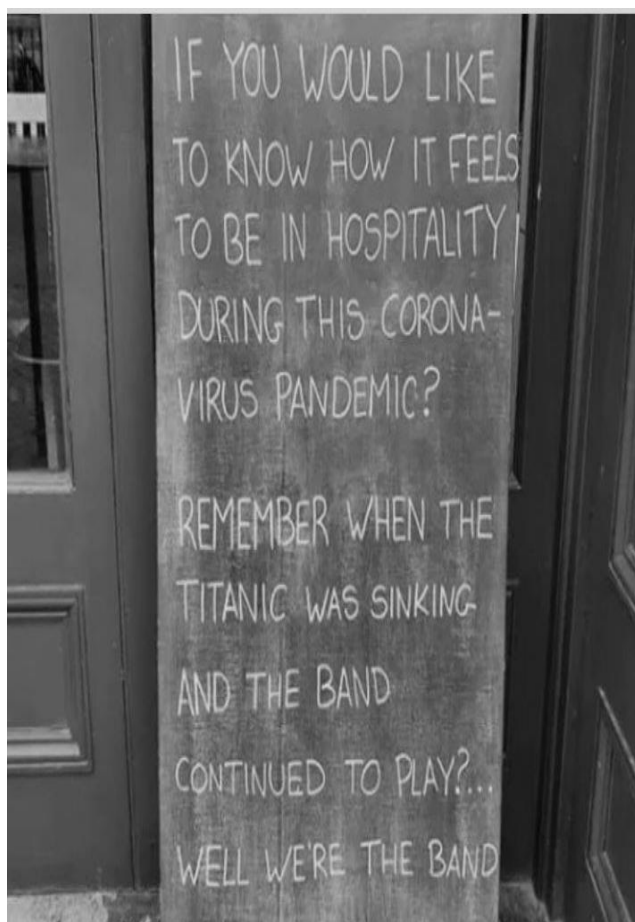 IF YOU WOULD LIKE
TO KNOW HOW IT FEELS
TO BE IN HOSPITALITY
DURING THIS CORONA-
VIRUS PANDEMIC?
REMEMBER WHEN THE
TITANIC WAS SINKING
AND THE BAND
CONTINUED TO PLAY?...
WELL WE'RE THE BAND